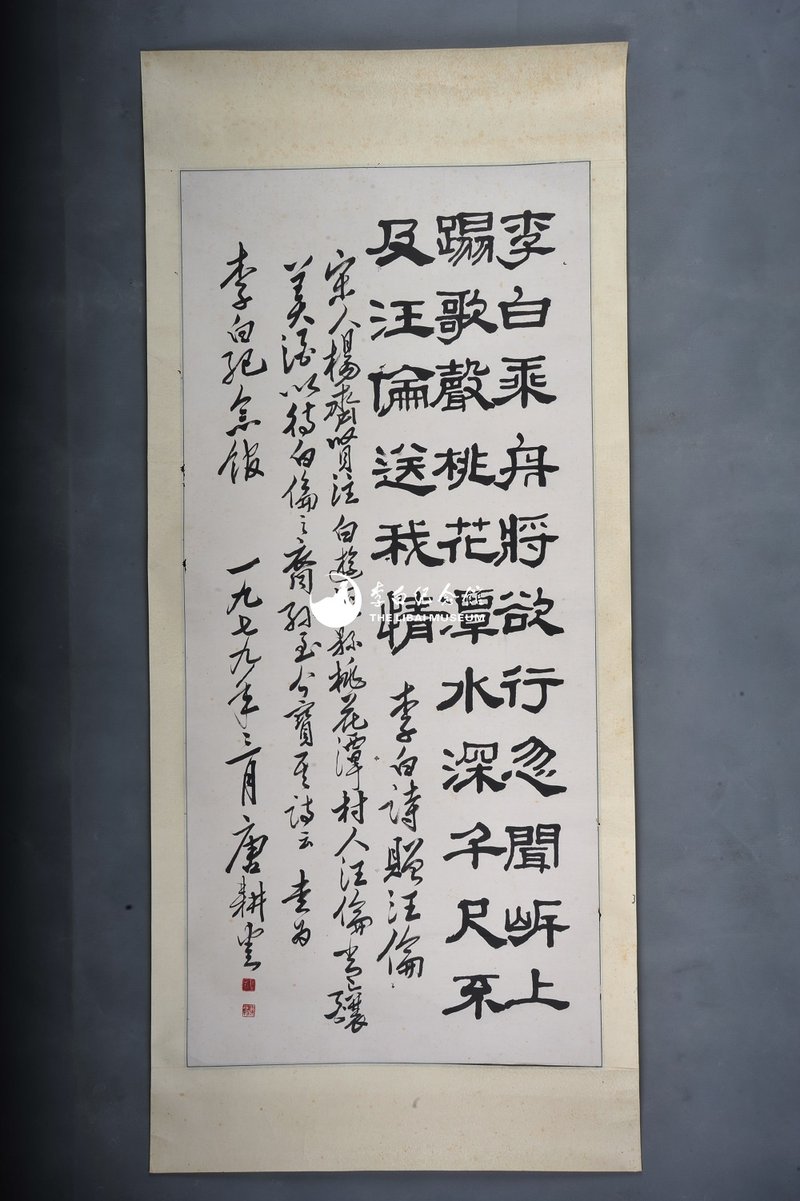 李白乘舟將欲行忽聞岸上
蹋歌聲桃花潭水深千尺不
及汪倫送我情 李白詩贈汪倫
宋人楊齊賢注白遊涇縣桃花潭村人汪倫常釀
美酒以待白倫之裔孫至今寶其詩云 書為
李白紀念館 一九七九年三月 唐耕
李白纪念馆
THE LIBAI MUSEUM